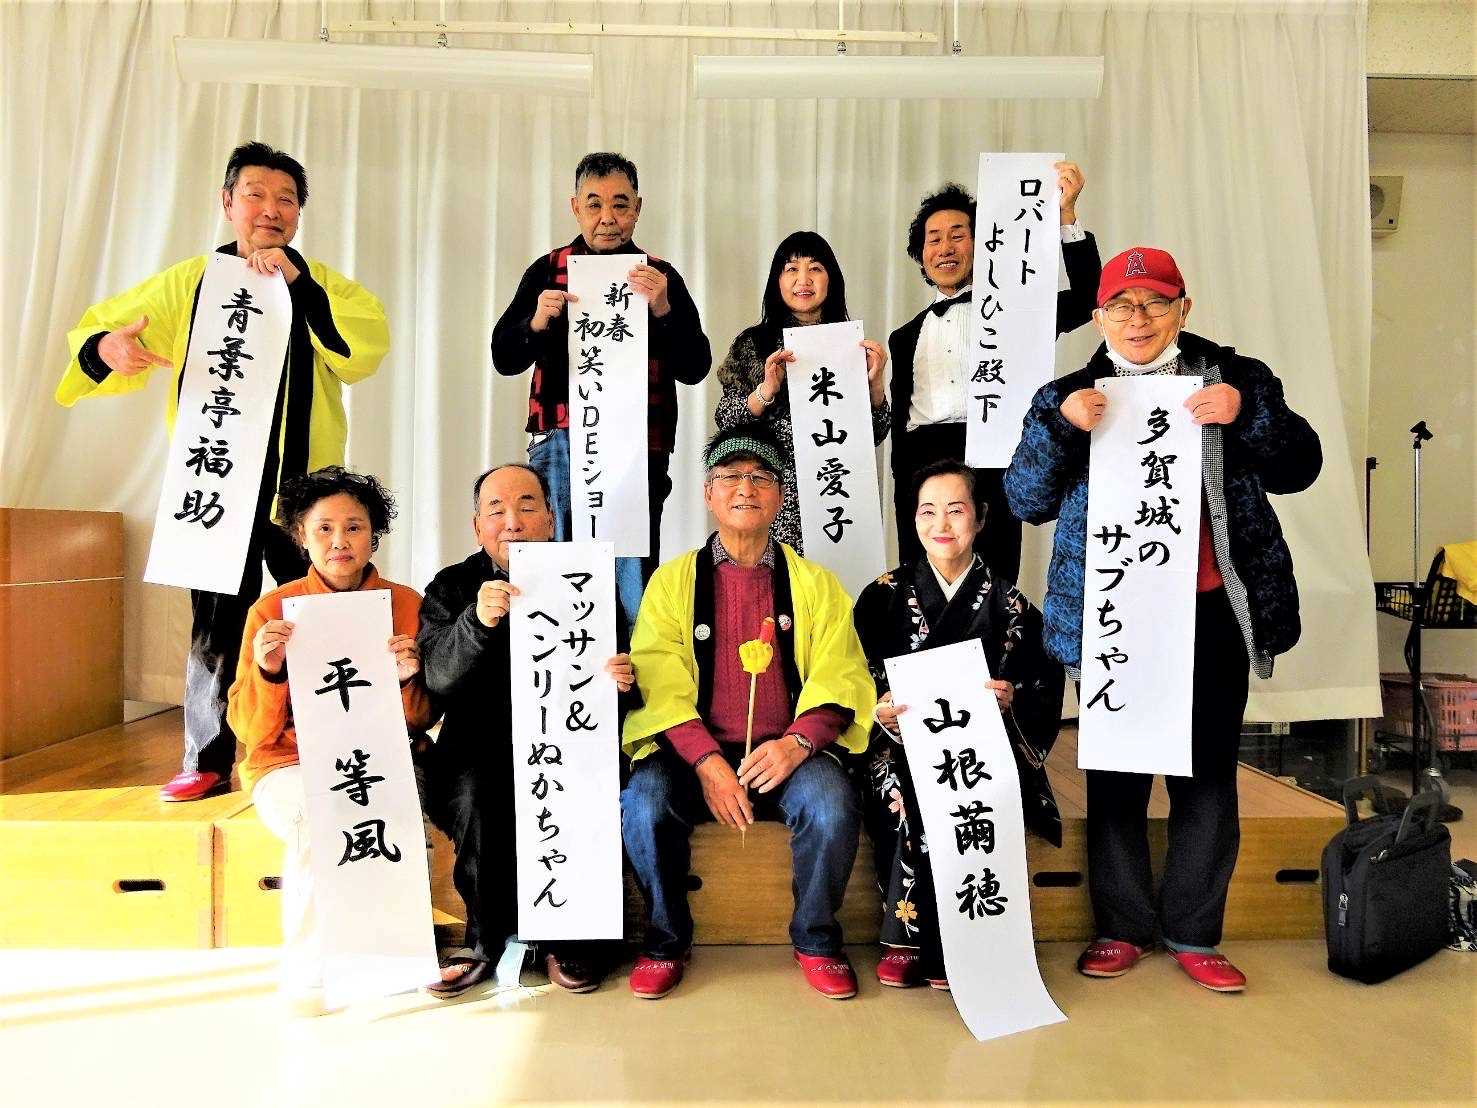 青葉亭福助
新春
初笑いDEショー
米山愛子
ロバート
よしひこ殿下
多賀城の
サブちゃん
平等風
マッサン&
ヘンリーぬかちゃん
山根繭穂
A